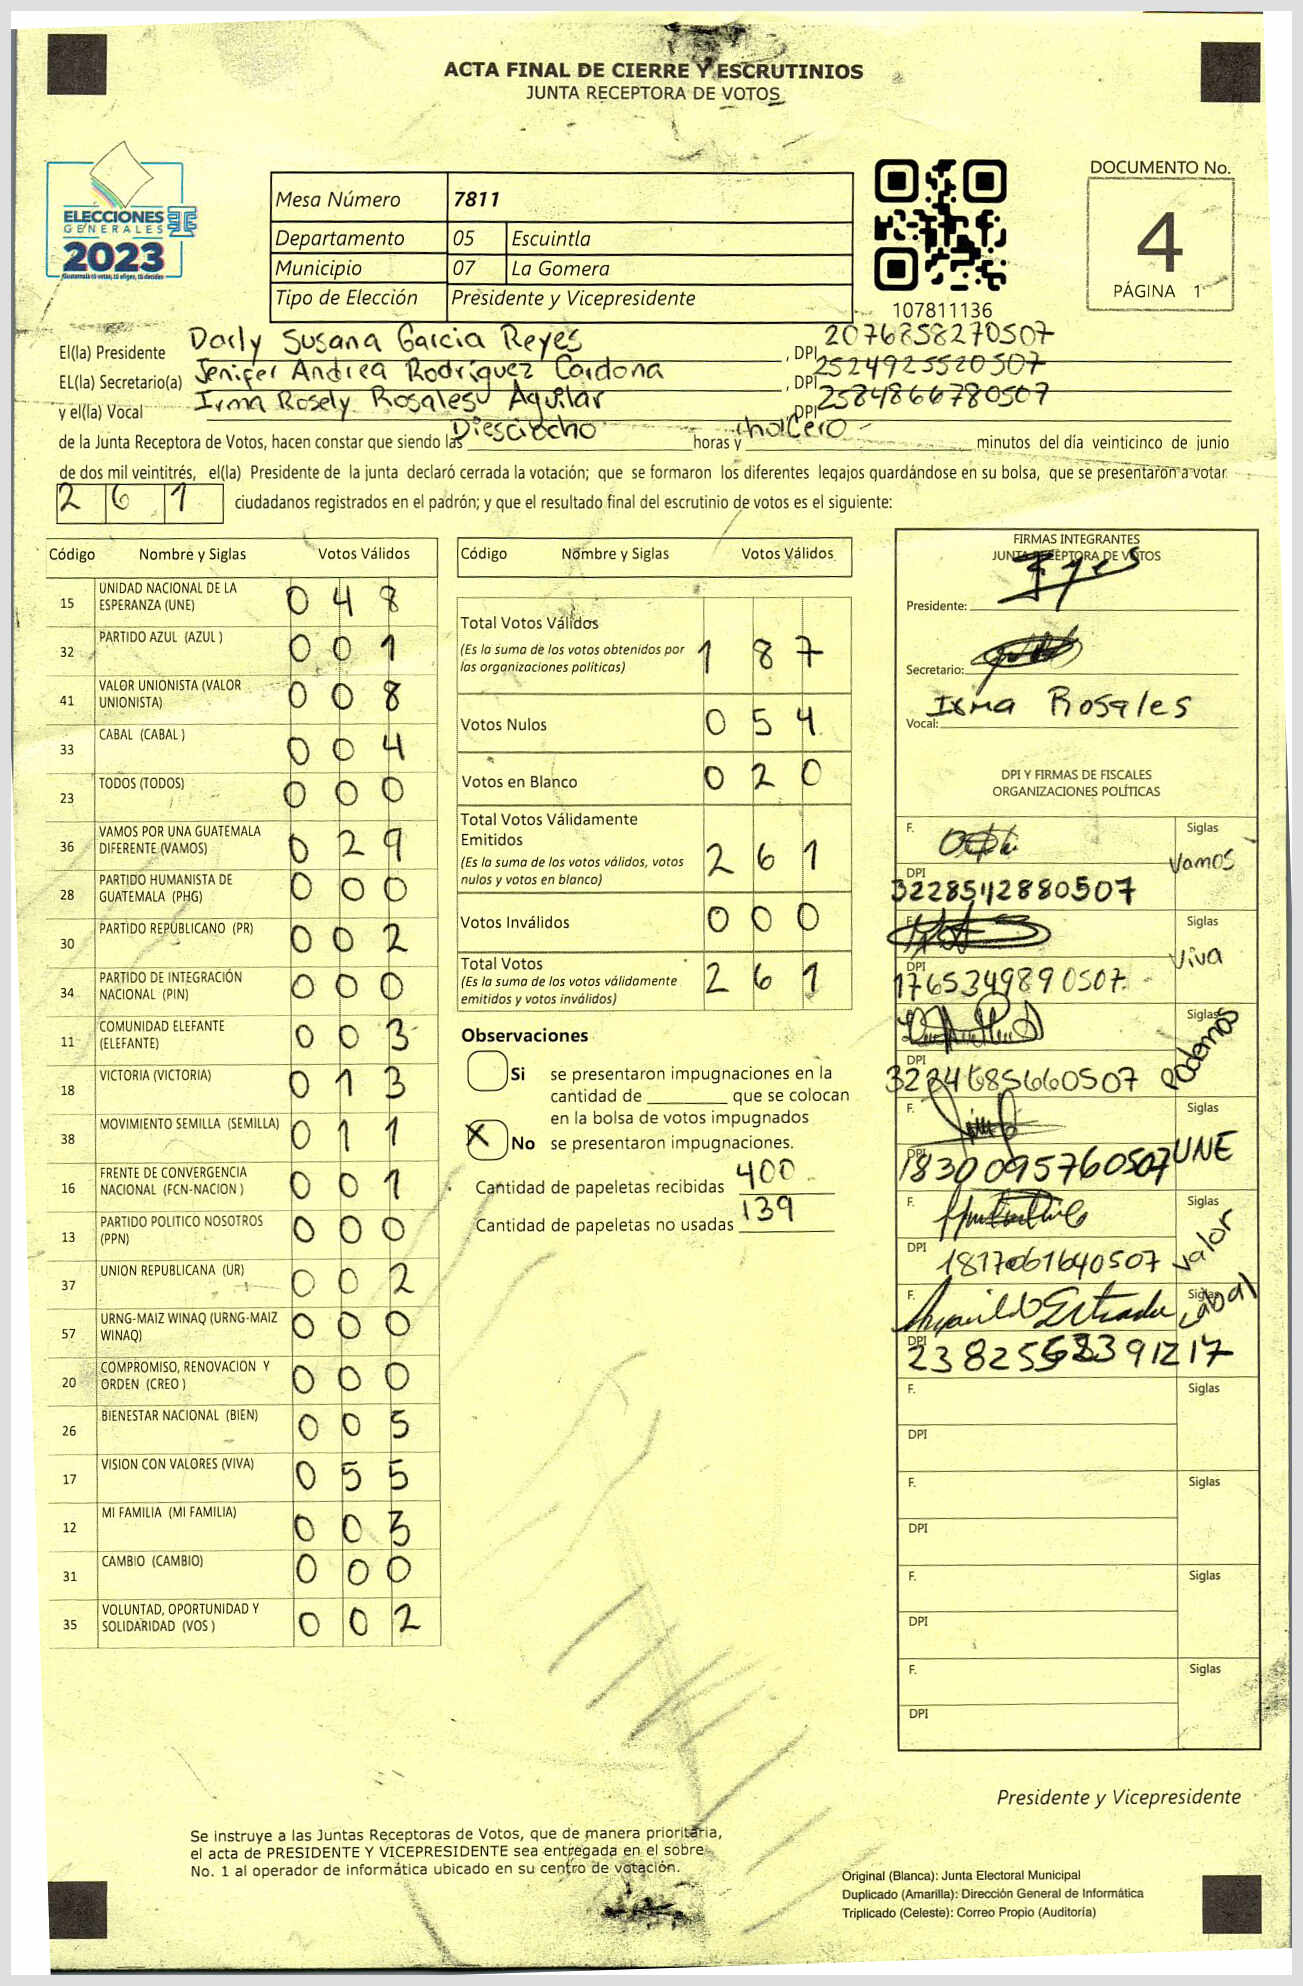 ACTA FINAL DE CIERRE Y ESCRUTINIOS
JUNTA RECEPTORA DE VOTOS
ELECCIONES
GENERALES
2023
Mesa Número 7811
Departamento 05 Escuintla
Municipio 07 La Gomera
Tipo de Elección Presidente y Vicepresidente
107811136
DOCUMENTO No.
4
PÁGINA 1
El(la) Presidente Darly Susana Garcia Reyes , DPI 2076858270507
EL(la) Secretario(a) Jenifer Andrea Rodríguez Cardona , DPI 2524925520507
y el(la) Vocal Irma Rosely Rosales Aguilar DPI 2584866780507
de la Junta Receptora de Votos, hacen constar que siendo las Diesciocho horas y Cero minutos del día veinticinco de junio
de dos mil veintitrés, el(la) Presidente de la junta declaró cerrada la votación; que se formaron los diferentes legajos guardándose en su bolsa, que se presentaron a votar
261 ciudadanos registrados en el padrón; y que el resultado final del escrutinio de votos es el siguiente:
Código Nombre y Siglas Votos Válidos
15 UNIDAD NACIONAL DE LA ESPERANZA (UNE) 0 4 8
32 PARTIDO AZUL (AZUL ) 0 0 1
41 VALOR UNIONISTA (VALOR UNIONISTA) 0 0 8
33 CABAL (CABAL ) 0 0 4
23 TODOS (TODOS) 0 0 0
36 VAMOS POR UNA GUATEMALA DIFERENTE (VAMOS) 0 2 9
28 PARTIDO HUMANISTA DE GUATEMALA (PHG) 0 0 0
30 PARTIDO REPUBLICANO (PR) 0 0 2
34 PARTIDO DE INTEGRACIÓN NACIONAL (PIN) 0 0 0
11 COMUNIDAD ELEFANTE (ELEFANTE) 0 0 3
18 VICTORIA (VICTORIA) 0 1 3
38 MOVIMIENTO SEMILLA (SEMILLA) 0 1 1
16 FRENTE DE CONVERGENCIA NACIONAL (FCN-NACION ) 0 0 1
13 PARTIDO POLITICO NOSOTROS (PPN) 0 0 0
37 UNION REPUBLICANA (UR) 0 0 2
57 URNG-MAIZ WINAQ (URNG-MAIZ WINAQ) 0 0 0
20 COMPROMISO, RENOVACION Y ORDEN (CREO ) 0 0 0
26 BIENESTAR NACIONAL (BIEN) 0 0 5
17 VISION CON VALORES (VIVA) 0 5 5
12 MI FAMILIA (MI FAMILIA) 0 0 3
31 CAMBIO (CAMBIO) 0 0 0
35 VOLUNTAD, OPORTUNIDAD Y SOLIDARIDAD (VOS ) 0 0 2
Código Nombre y Siglas Votos Válidos
Total Votos Válidos
(Es la suma de los votos obtenidos por las organizaciones políticas) 1 8 7
Votos Nulos 0 5 4
Votos en Blanco 0 2 0
Total Votos Válidamente Emitidos
(Es la suma de los votos válidos, votos nulos y votos en blanco) 2 6 1
Votos Inválidos 0 0 0
Total Votos
(Es la suma de los votos válidamente emitidos y votos inválidos) 2 6 1
Observaciones
Si se presentaron impugnaciones en la
cantidad de ________ que se colocan
en la bolsa de votos impugnados
X No se presentaron impugnaciones.
Cantidad de papeletas recibidas 400
Cantidad de papeletas no usadas 139
FIRMAS INTEGRANTES
JUNTA RECEPTORA DE VOTOS
Presidente:
Secretario:
Vocal: Irma Rosales
DPI Y FIRMAS DE FISCALES
ORGANIZACIONES POLÍTICAS
F. Siglas Vamos
DPI 3228542880507
F. Siglas Viva
DPI 1765349890507
Siglas Podemos
DPI 3234685660507
F. Siglas UNE
DPI 1830095760507
F. Siglas Valor
DPI 1817061640507
F. Siglas Cabal
DPI
F. Siglas
DPI
F. Siglas
DPI
F. Siglas
DPI
F. Siglas
DPI
Presidente y Vicepresidente
Se instruye a las Juntas Receptoras de Votos, que de manera prioritaria,
el acta de PRESIDENTE Y VICEPRESIDENTE sea entregada en el sobre
No. 1 al operador de informática ubicado en su centro de votación.
Original (Blanca): Junta Electoral Municipal
Duplicado (Amarilla): Dirección General de Informática
Triplicado (Celeste): Correo Propio (Auditoría)